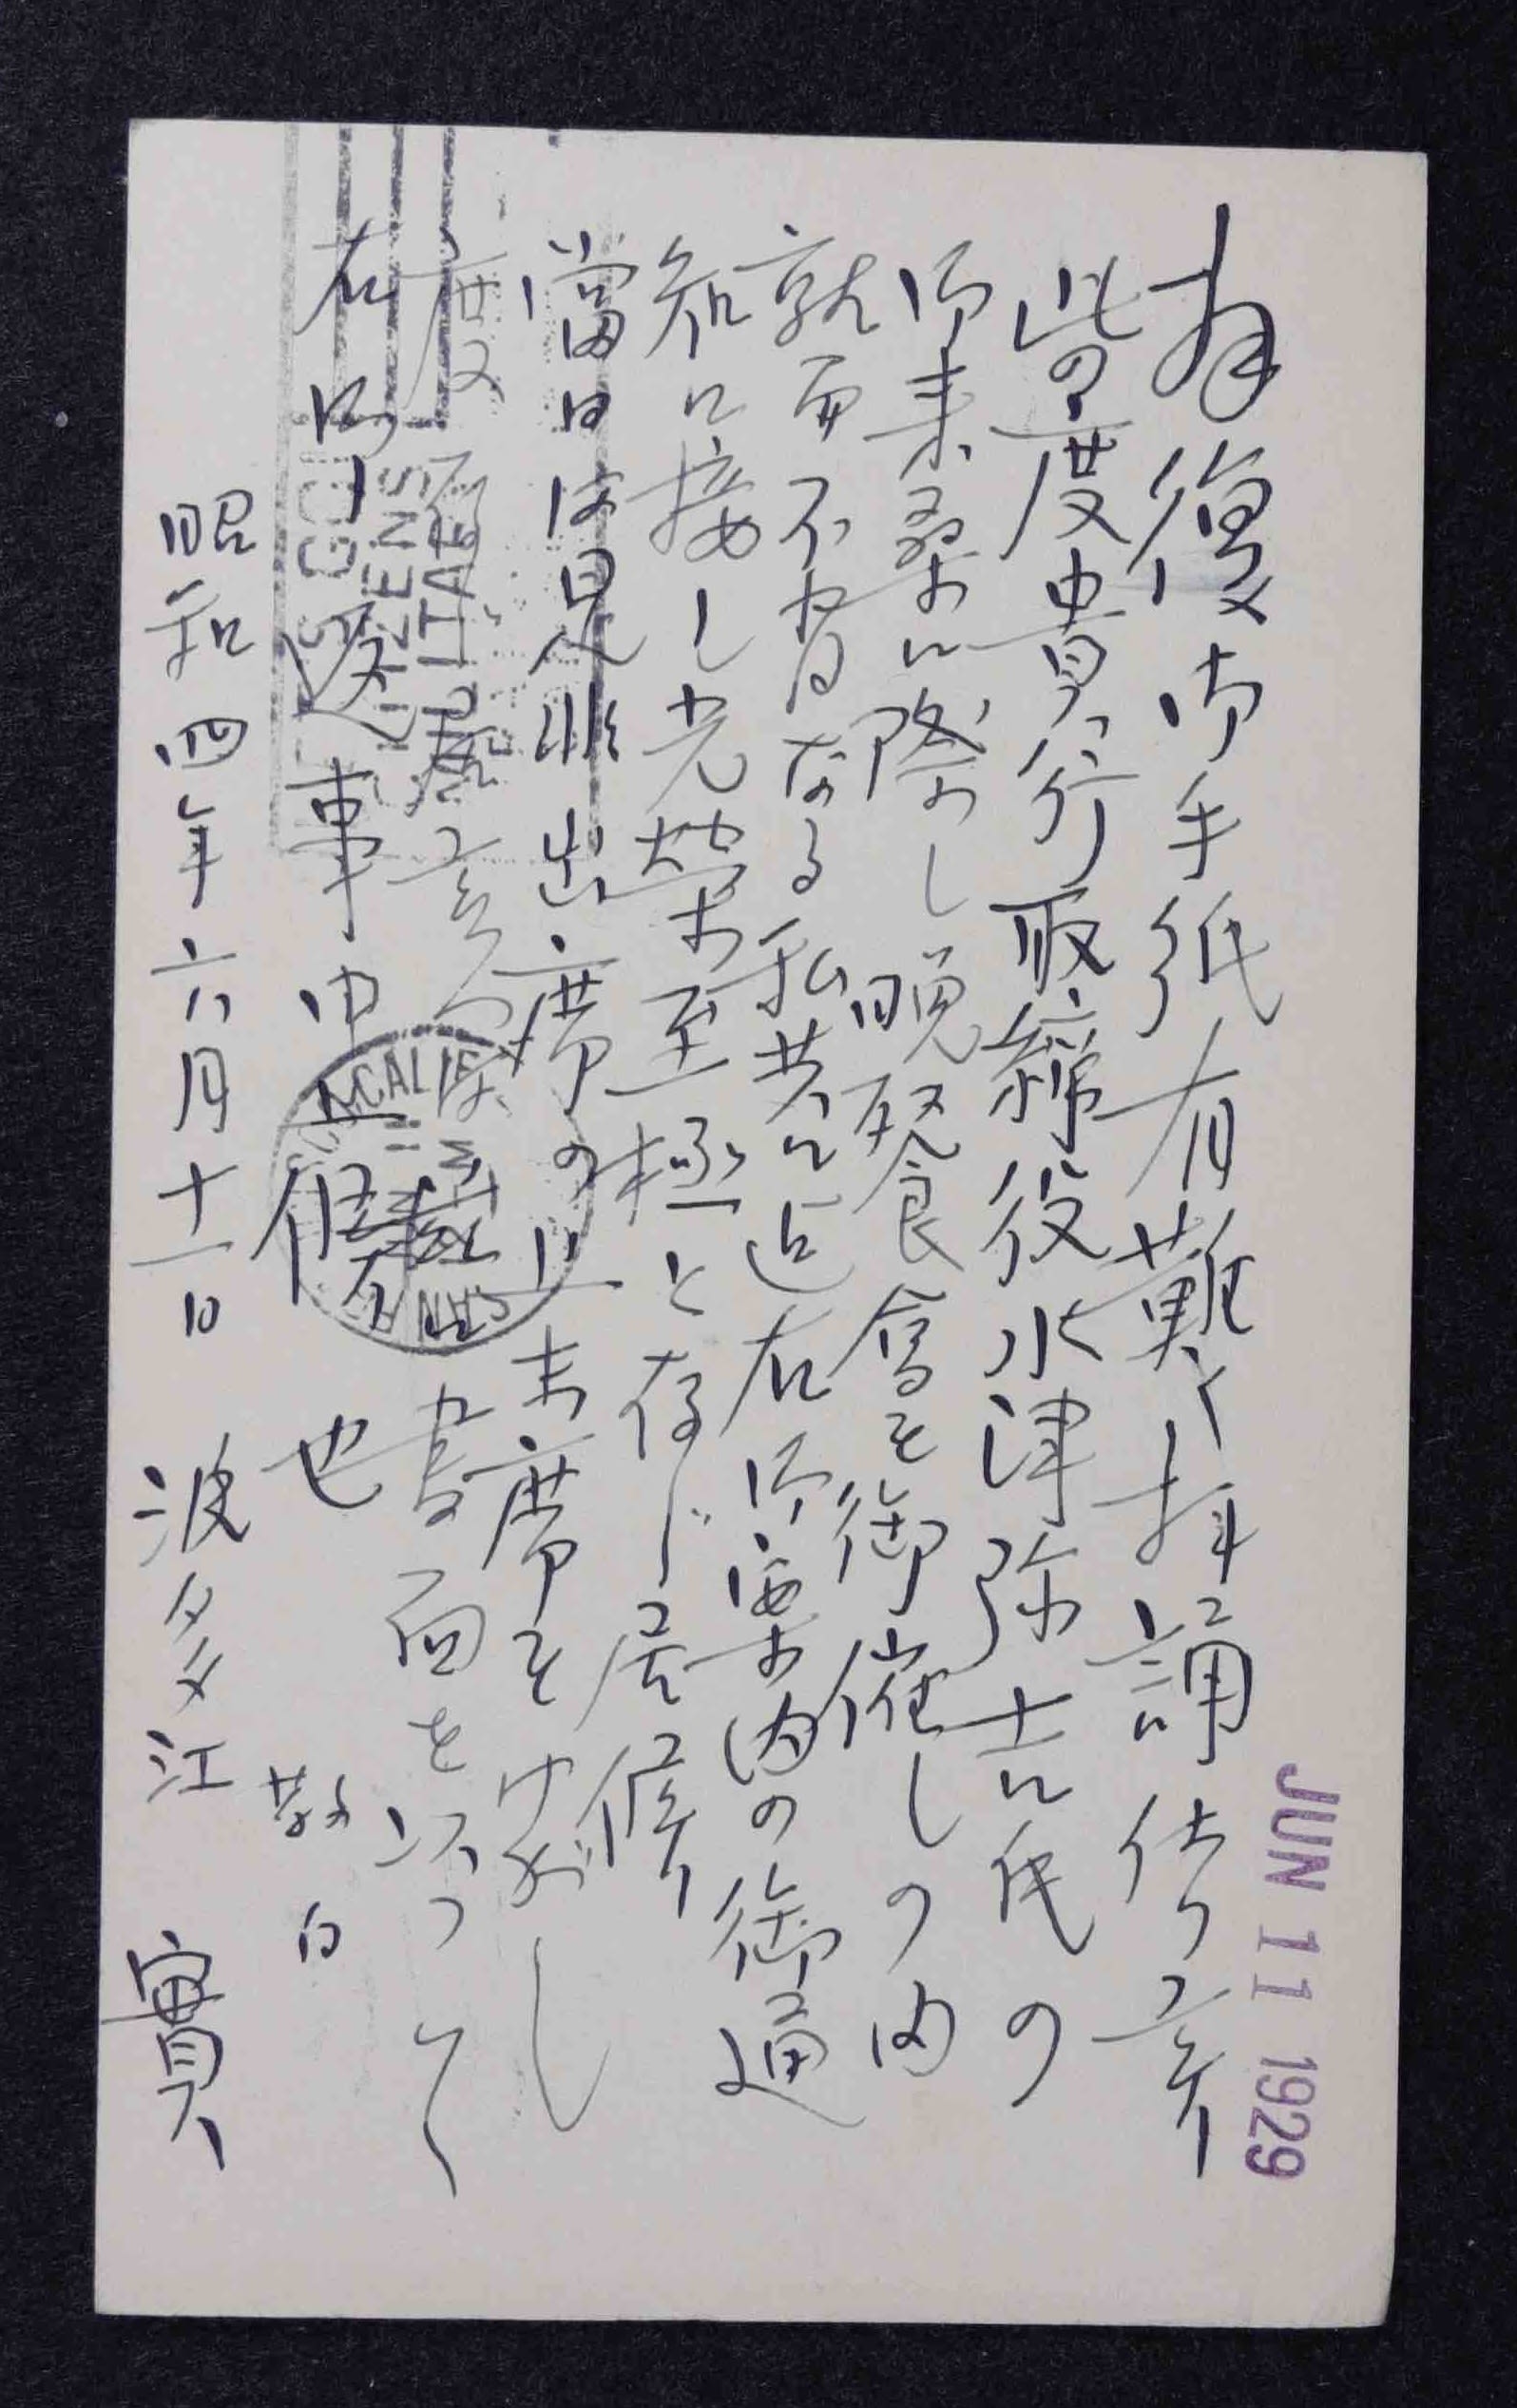 拝復御手紙有難く拝誦仕り候
此の度貴行取締役水津弥吉氏の
御来桑に際し晩餐會を御催しの由
就而不肖なる私共に迄右御案内の御通
知に接し光榮至極と存じ居候
當日は是非出席の上末席をけがし
度
書面を以って
右御返事申上候也
敬白
昭和四年六月十一日 波多江 
JUN 11 1929
CALIF
SAN